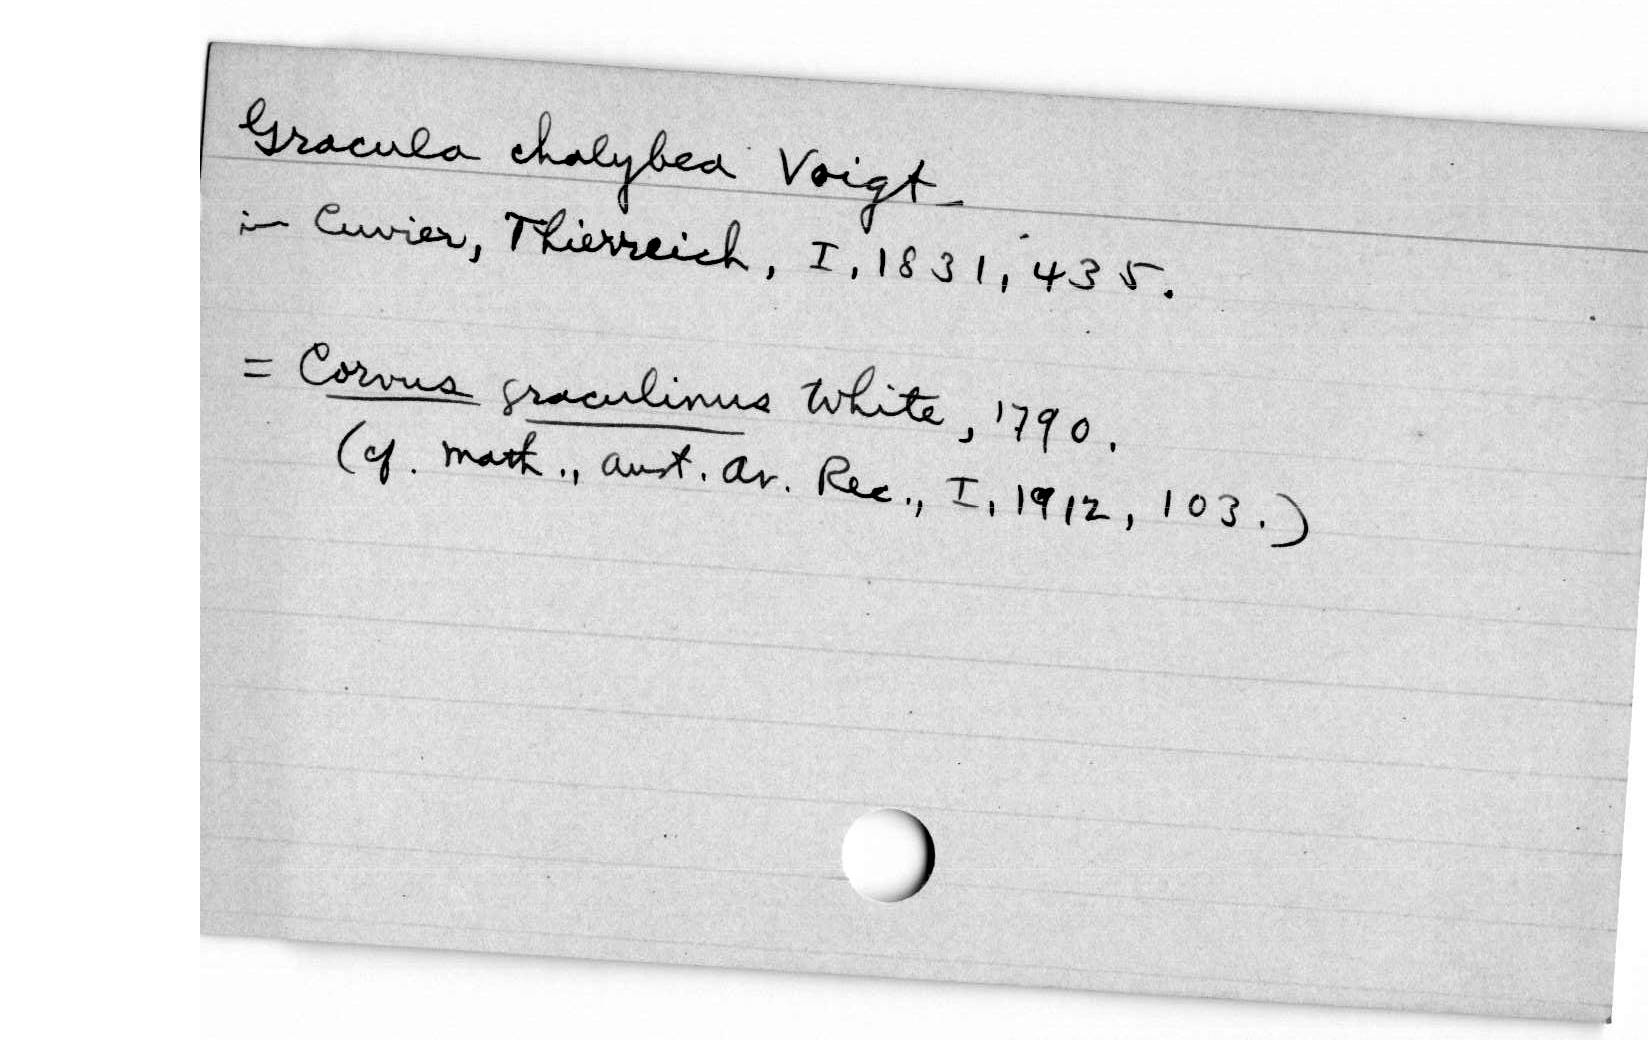 Gracula chalybea Voigt
in Cuvier, Thierreich, I, 1831, 435.
= Corvus graculinus White, 1790.
(cf. Math., Aust. Av. Rec., I, 1912, 103.)